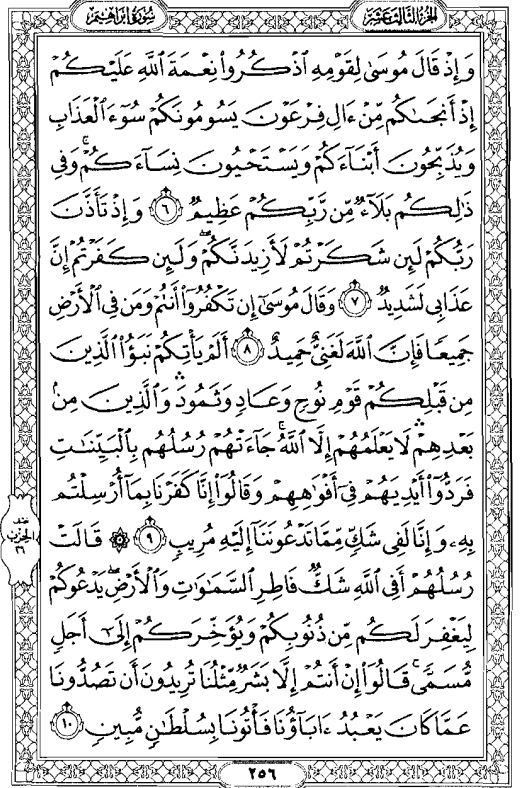 سُورَةُ إِبْرَاهِيمَ
الجُزْءُ الثَّالِثَ عَشَرَ
وَإِذْ قَالَ مُوسَىٰ لِقَوْمِهِ ٱذْكُرُوا۟ نِعْمَةَ ٱللَّهِ عَلَيْكُمْ
إِذْ أَنجَىٰكُم مِّنْ ءَالِ فِرْعَوْنَ يَسُومُونَكُمْ سُوٓءَ ٱلْعَذَابِ
وَيُذَبِّحُونَ أَبْنَآءَكُمْ وَيَسْتَحْيُونَ نِسَآءَكُمْ ۚ وَفِى
ذَٰلِكُم بَلَآءٌ مِّن رَّبِّكُمْ عَظِيمٌ ٦ وَإِذْ تَأَذَّنَ
رَبُّكُمْ لَئِن شَكَرْتُمْ لَأَزِيدَنَّكُمْ ۖ وَلَئِن كَفَرْتُمْ إِنَّ
عَذَابِى لَشَدِيدٌ ٧ وَقَالَ مُوسَىٰٓ إِن تَكْفُرُوٓا۟ أَنتُمْ وَمَن فِى ٱلْأَرْضِ
جَمِيعًا فَإِنَّ ٱللَّهَ لَغَنِىٌّ حَمِيدٌ ٨ أَلَمْ يَأْتِكُمْ نَبَؤُا۟ ٱلَّذِينَ
مِن قَبْلِكُمْ قَوْمِ نُوحٍ وَعَادٍ وَثَمُودَ ۛ وَٱلَّذِينَ مِنۢ
بَعْدِهِمْ ۛ لَا يَعْلَمُهُمْ إِلَّا ٱللَّهُ ۚ جَآءَتْهُمْ رُسُلُهُم بِٱلْبَيِّنَٰتِ
فَرَدُّوٓا۟ أَيْدِيَهُمْ فِىٓ أَفْوَٰهِهِمْ وَقَالُوٓا۟ إِنَّا كَفَرْنَا بِمَآ أُرْسِلْتُم
بِهِۦ وَإِنَّا لَفِى شَكٍّ مِّمَّا تَدْعُونَنَآ إِلَيْهِ مُرِيبٍ ٩ ۞ قَالَتْ
رُسُلُهُمْ أَفِى ٱللَّهِ شَكٌّ فَاطِرِ ٱلسَّمَٰوَٰتِ وَٱلْأَرْضِ ۖ يَدْعُوكُمْ
لِيَغْفِرَ لَكُم مِّن ذُنُوبِكُمْ وَيُؤَخِّرَكُمْ إِلَىٰٓ أَجَلٍ
مُّسَمًّى ۚ قَالُوٓا۟ إِنْ أَنتُمْ إِلَّا بَشَرٌ مِّثْلُنَا تُرِيدُونَ أَن تَصُدُّونَا
عَمَّا كَانَ يَعْبُدُ ءَابَآؤُنَا فَأْتُونَا بِسُلْطَٰنٍ مُّبِينٍ ١٠
نصف
الحزب
٢٦
٢٥٦